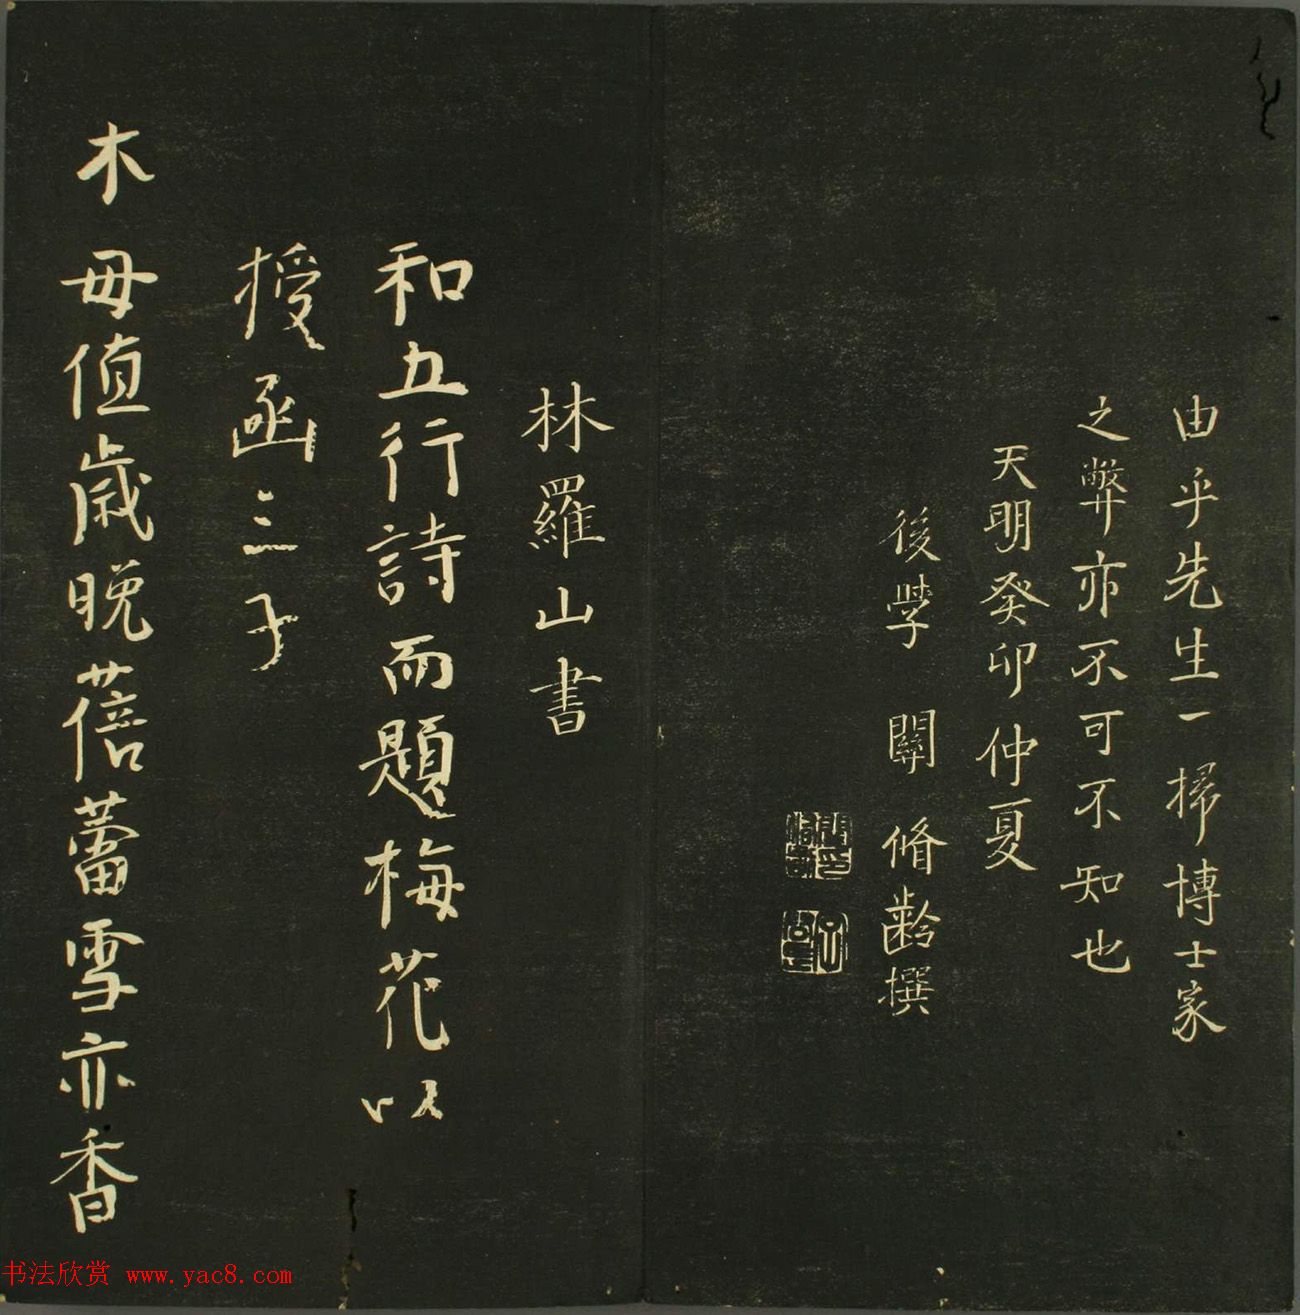 由乎先生一掃博士家
之弊亦不可不知也
天明癸卯仲夏
後学 關脩齡撰
林羅山書
和五行詩而題梅花以
授函三子
木 母值歳晚蓓蕾雪亦香
书法欣赏 www.yac8.com